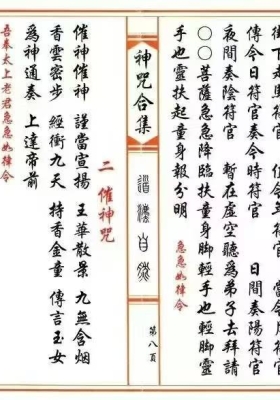 街下馬符官
傳今日符官奏今時符官 日間奏陽符官
夜間奏陰符官 暫在虛空聽為弟子去拜請
○○菩薩急急降臨扶童身腳輕手也輕腳靈
手也靈扶起童身報分明 急急如律令
神咒合集
道法自然
第八頁
二 催神咒
催神催神 謹當宣揚 王華散景 九無含烟
香雲密步 經衝九天 持香金童 傳言玉女
為神通奏 上達帝前
吾奉太上老君急急如律令